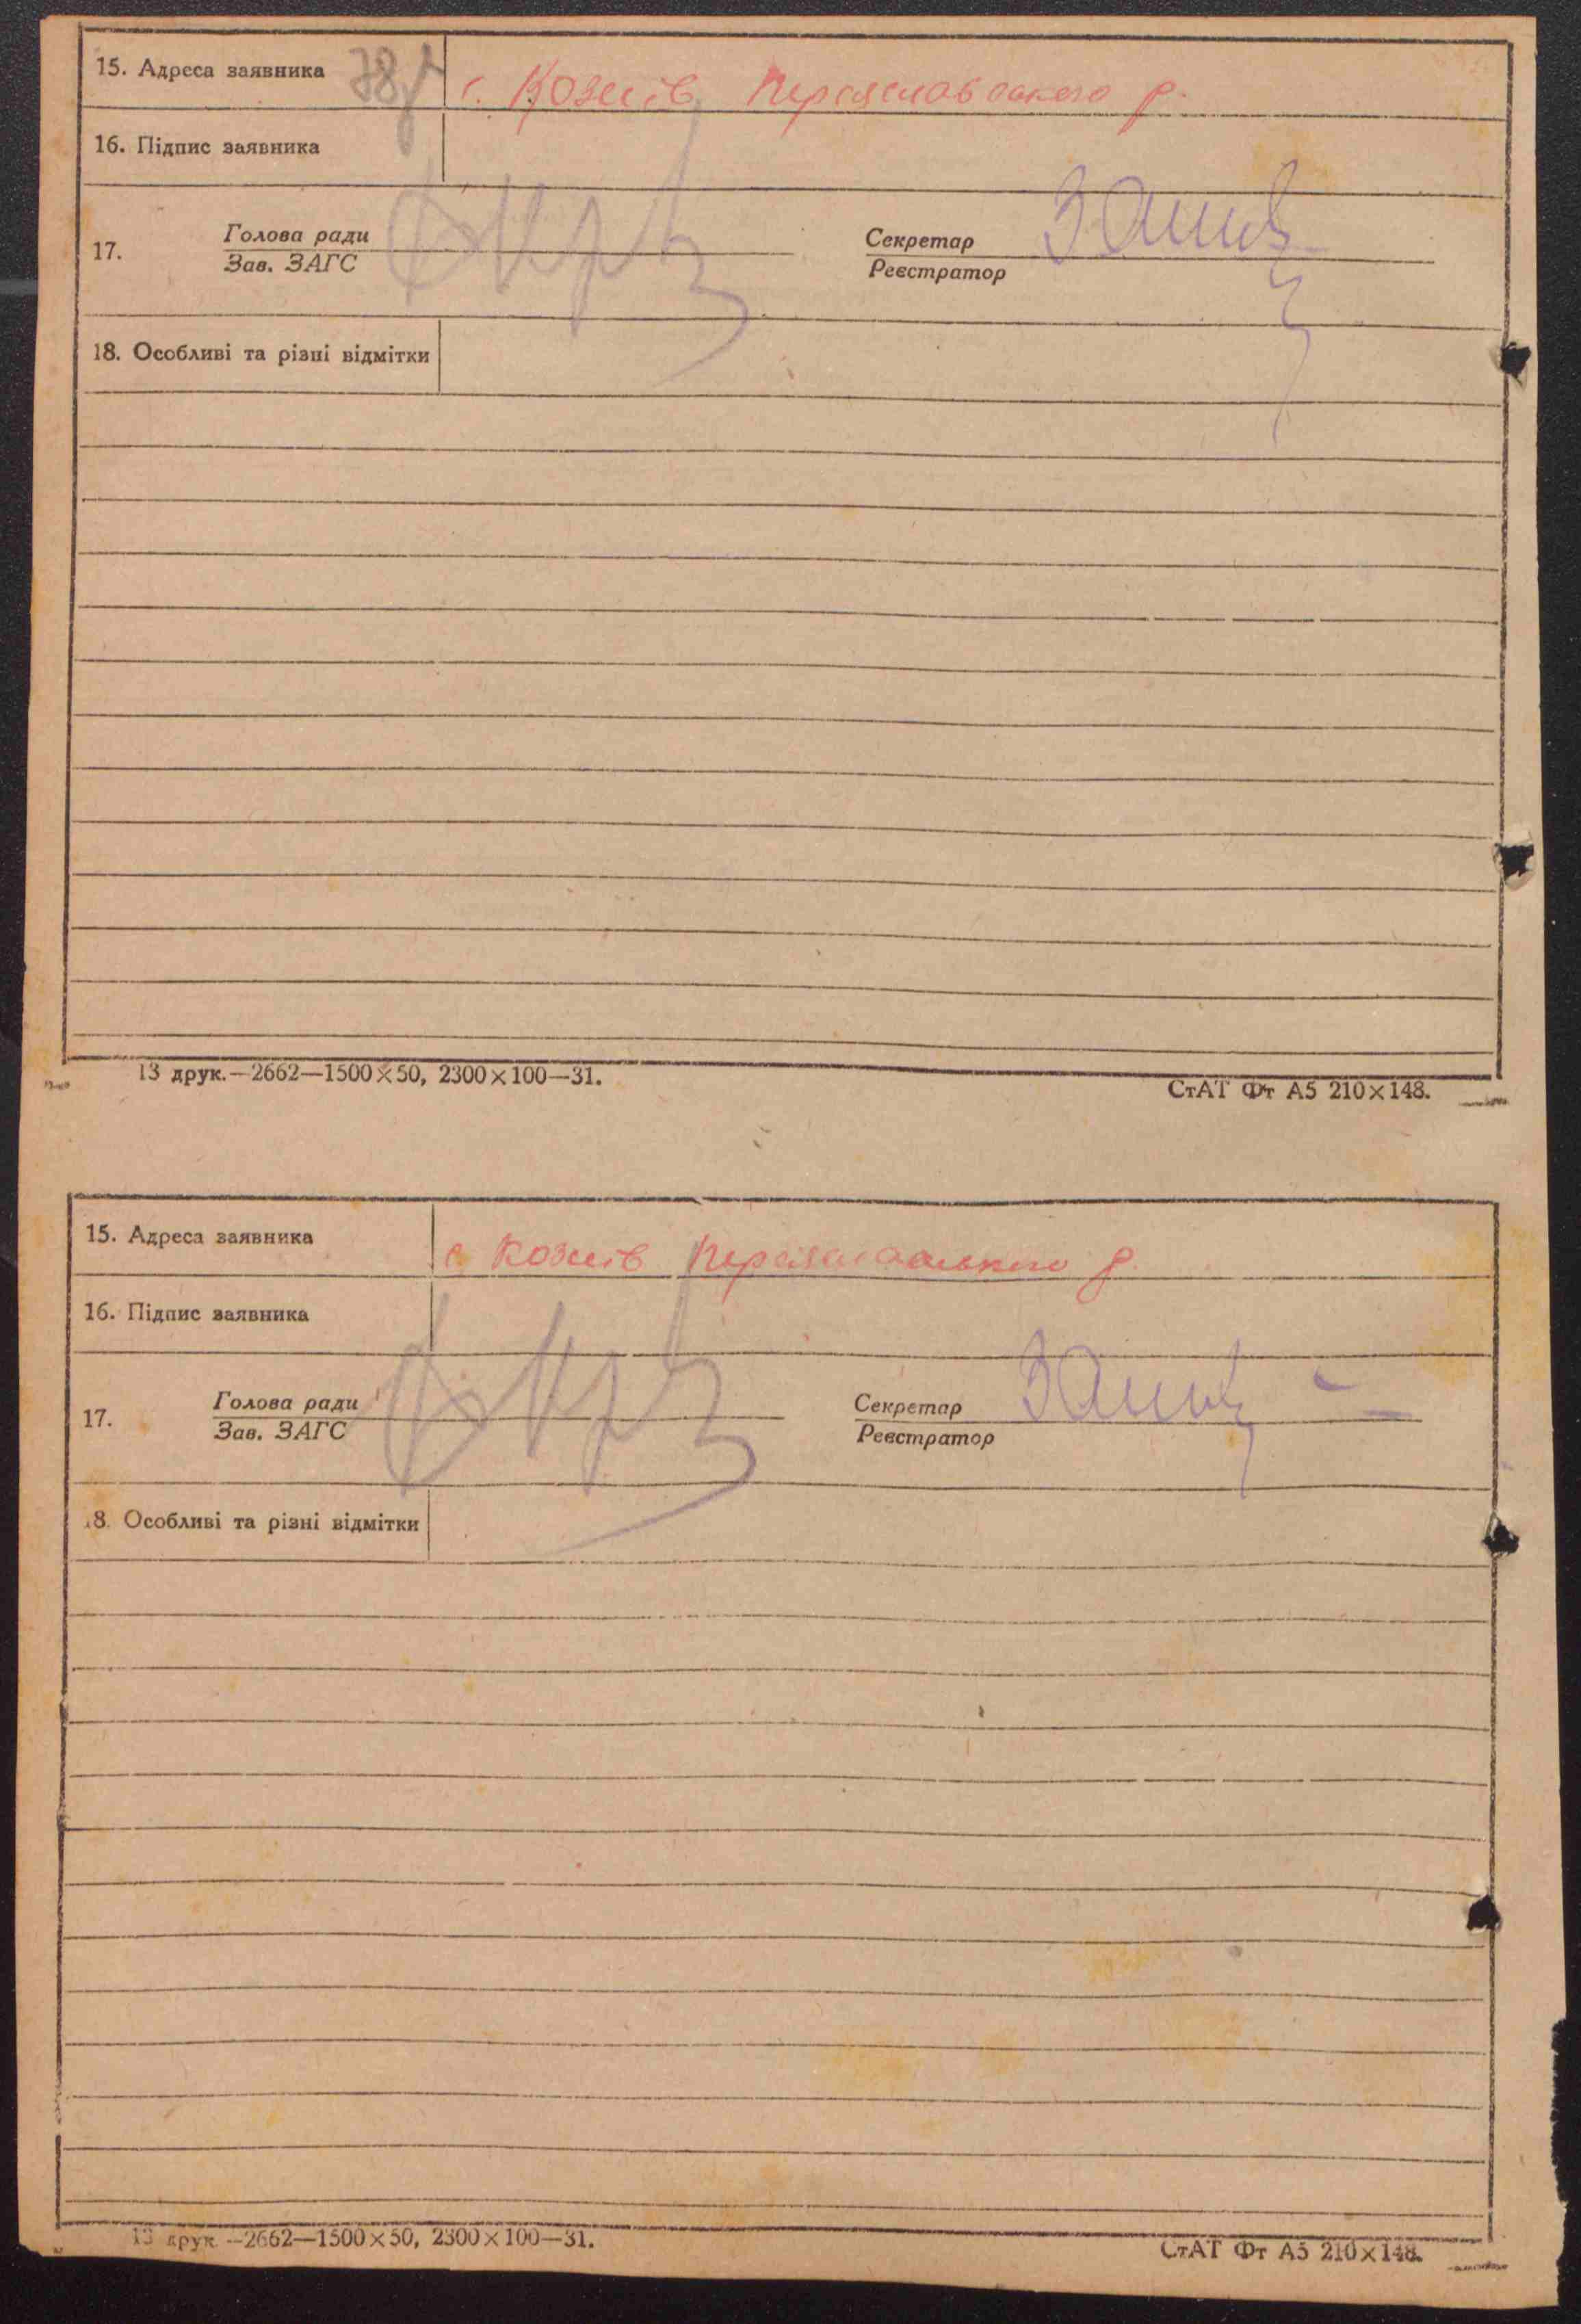 15. Адреса заявника с. Козлів Переяславського р.
16. Підпис заявника
17. Голова ради Секретар
Зав. ЗАГС Реєстратор
18. Особливі та різні відмітки
13 друк.—2662—1500×50, 2300×100—31.
СтАТ Фт А5 210×148.
15. Адреса заявника с Козлів Переяславського р.
16. Підпис заявника
17. Голова ради Секретар
Зав. ЗАГС Реєстратор
18. Особливі та різні відмітки
13 друк.—2662—1500×50, 2300×100—31.
СтАТ Фт А5 210×148.